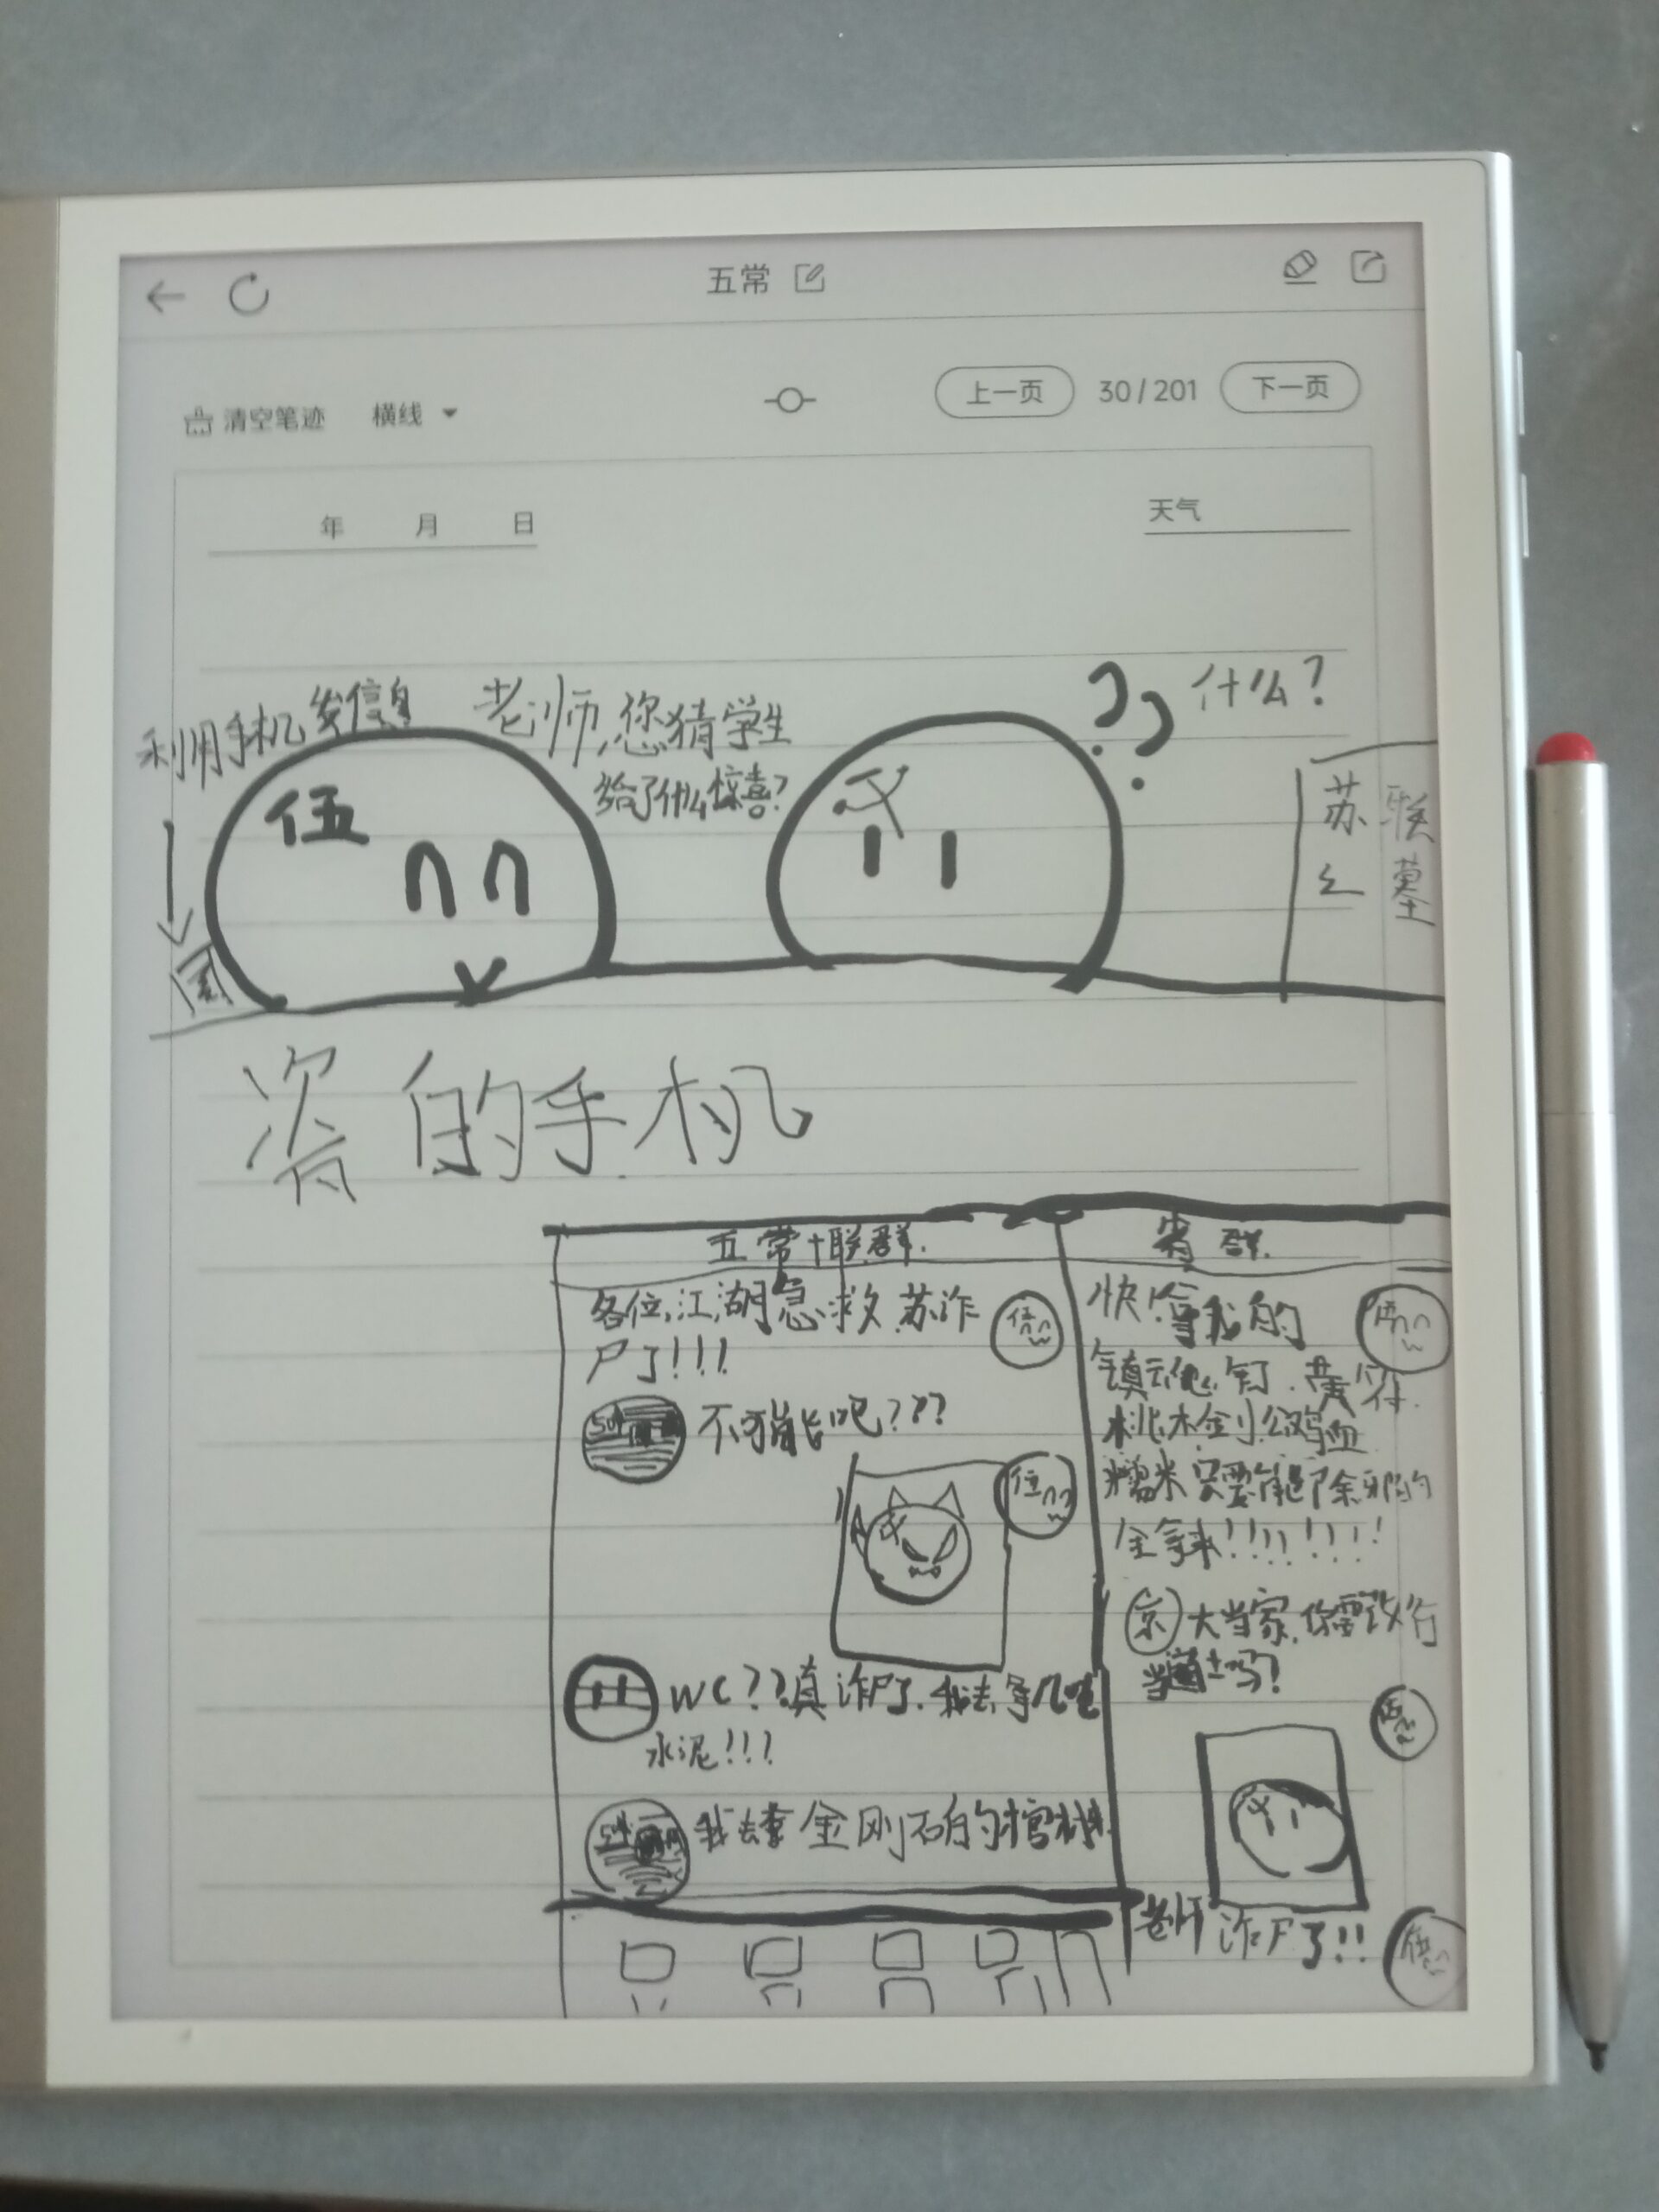 五常
清空笔迹 横线
上一页 30/201 下一页
年 月 日
天气
利用手机发信息
老师,您猜学生
给了什么惊喜?
?? 什么?
伍
苏联
之墓
瓷的手机
五常+联群.
各位,江湖急救.苏诈
尸了!!!
不可能吧???
WC??真诈尸了.我去拿几吨
水泥!!!
我去拿金刚石的棺材.
省群.
快!拿我的
镇 钉.黄符.
桃木剑.公鸡血
糯米 只要能 除邪的
全拿来!!!!!!!!
京 大当家,你需改行
当道士吗?
老师诈尸了!!